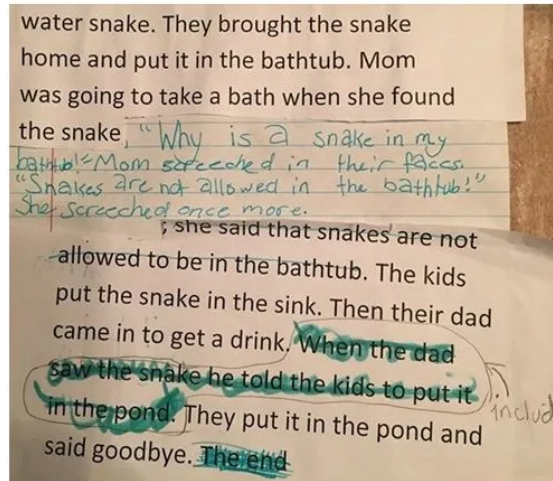 water snake. They brought the snake
home and put it in the bathtub. Mom
was going to take a bath when she found
the snake, "Why is a snake in my
bathtub!" Mom screeched in their faces.
"Snakes are not allowed in the bathtub!"
She screeched once more.
; she said that snakes are not
allowed to be in the bathtub. The kids
put the snake in the sink. Then their dad
came in to get a drink. When the dad
saw the snake he told the kids to put it
in the pond. They put it in the pond and
includ
said goodbye. The end